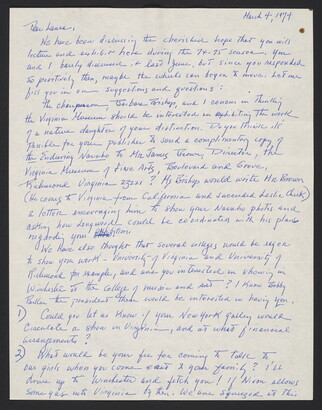 March 4, 1974
Dear Laura:
We have been discussing the cherished hope that you will
lecture and exhibit here during the 74-75 season. You
and I barely discussed it last June, but since you responded
so positively then, maybe the wheels can begin to move. Let me
fill you in on suggestions and questions:
The chairman, Barbara Bishop, and I concur in thinking
the Virginia Museum should be interested in exhibiting the work
of a native daughter of your distinction. Do you think it
possible for your publisher to send a complimentary copy of
the Enduring Navaho to Mr. James Brown, Director, the
Virginia Museum of Fine Arts, Boulevard and Grove,
Richmond Virginia 23221? Ms Bishop would write Mr. Brown
(He comes to Virginia from California and succeeded Leslie Cheek)
a letter encouraging him to show your Navaho photos and
asking how Longwood could be coordinated with his plans
regarding your exhibition.
We have also thought that several colleges would be eager
to show your work - University of Virginia and University of
Richmond for example, and are you interested in showing in
Winchester at the college of music and art? I know Bobby
the president there would be interested in having you.
1) Could you let us know if your New York gallery would
circulate a show in Virginia, and at what financial
arrangements?
2) What would be your fee for coming to talk to
our girls when you come east to your family? I'll
drive up to Winchester and fetch you! If Nixon allows
some gas into Virginia by then. We are squeezed at this